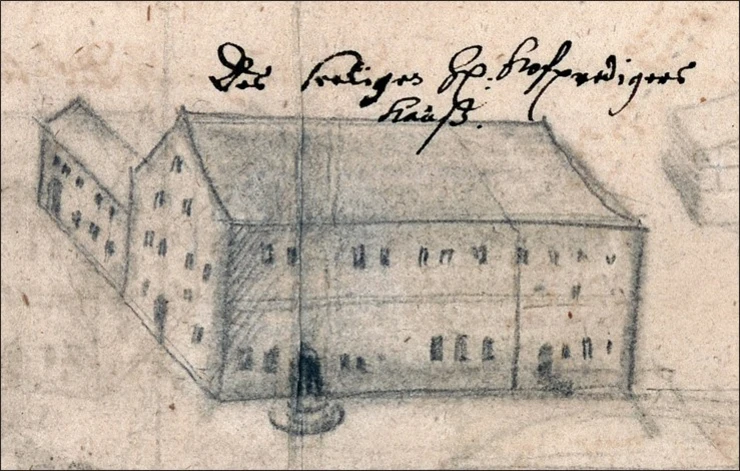 Des seeligen Hℓ: Hofpredigers
Hauß.